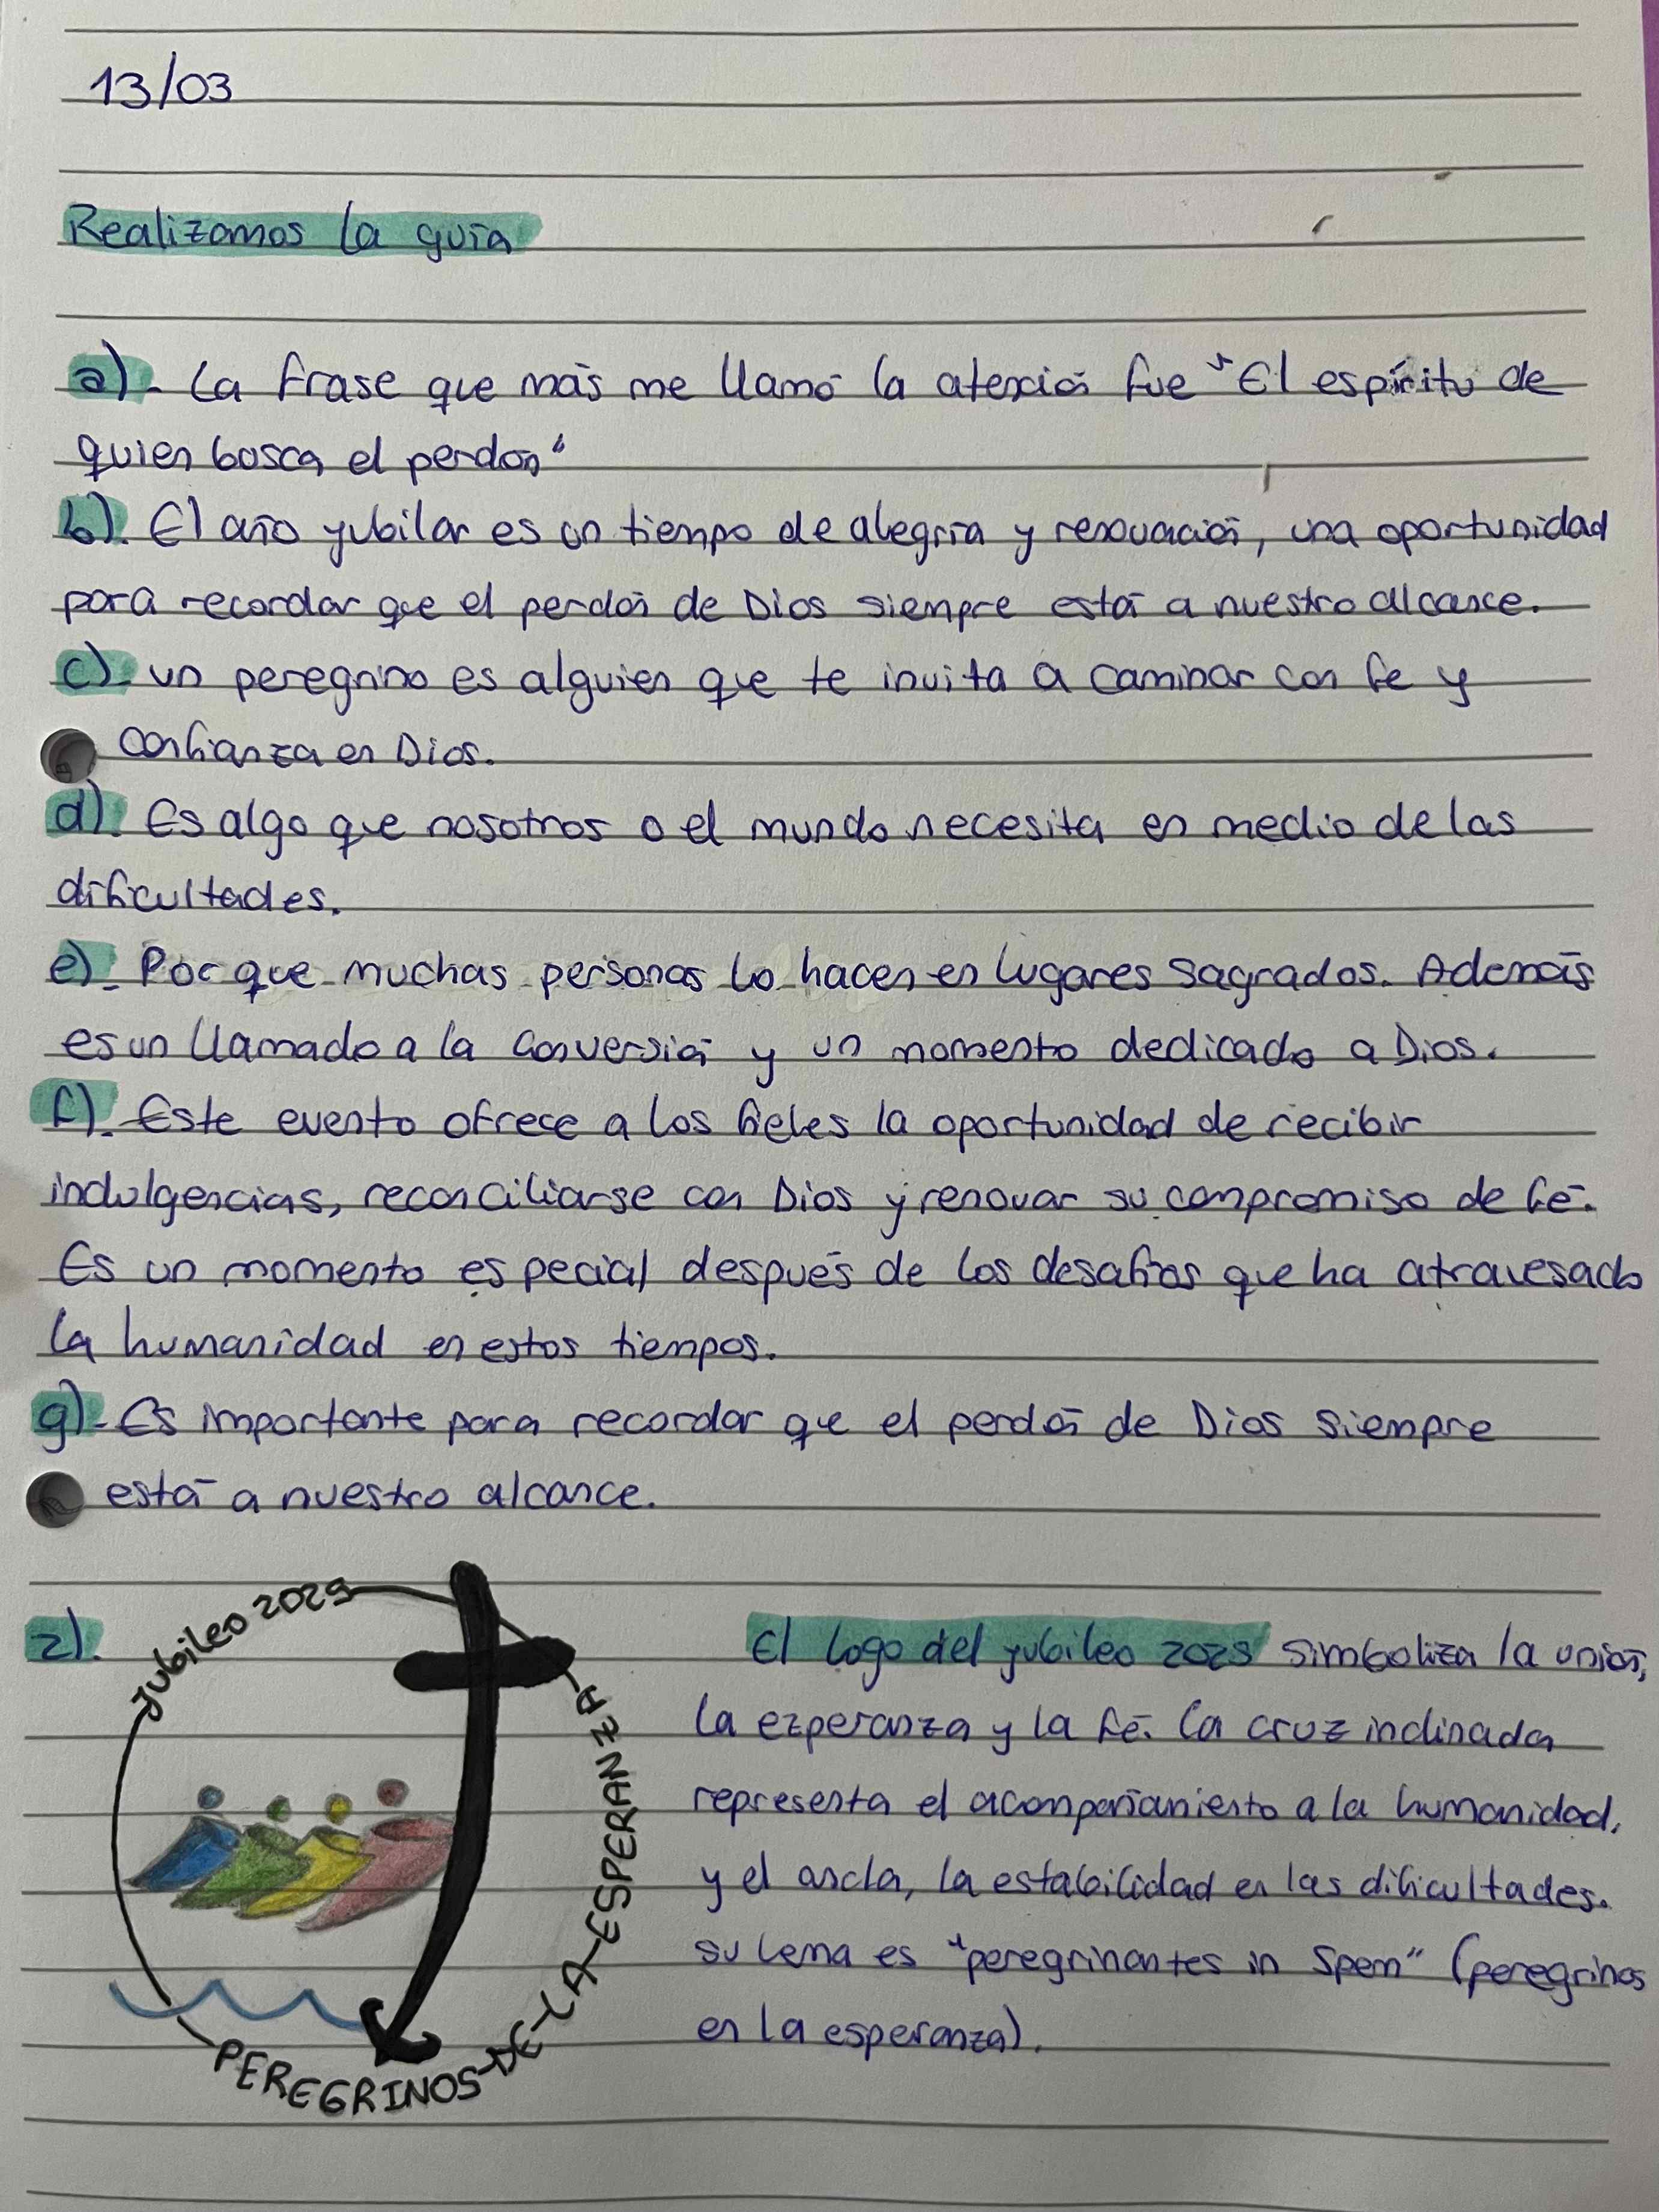 13/03
Realizamos la guía
a)- La frase que más me llamó la atención fue "El espíritu de
quien busca el perdón"
b). El año jubilar es un tiempo de alegría y renovación, una oportunidad
para recordar que el perdón de Dios siempre está a nuestro alcance.
c)- un peregrino es alguien que te invita a caminar con fe y
confianza en Dios.
d). Es algo que nosotros o el mundo necesita en medio de las
dificultades.
e)- Por que muchas personas lo hacen en lugares sagrados. Además
es un llamado a la conversión y un momento dedicado a Dios.
f). Este evento ofrece a los fieles la oportunidad de recibir
indulgencias, reconciliarse con Dios y renovar su compromiso de fé.
Es un momento especial después de los desafíos que ha atravesado
la humanidad en estos tiempos.
g)- Es importante para recordar que el perdón de Dios siempre
está a nuestro alcance.
2).
Jubileo 2025
PEREGRINOS-DE-LA-ESPERANZA
El logo del jubileo 2025 simboliza la unión,
la ezperanza y la fé. La cruz inclinada
representa el acompañamiento a la humanidad,
y el ancla, la estabilidad en las dificultades.
su lema es "peregrinantes in Spem" (peregrinos
en la esperanza).